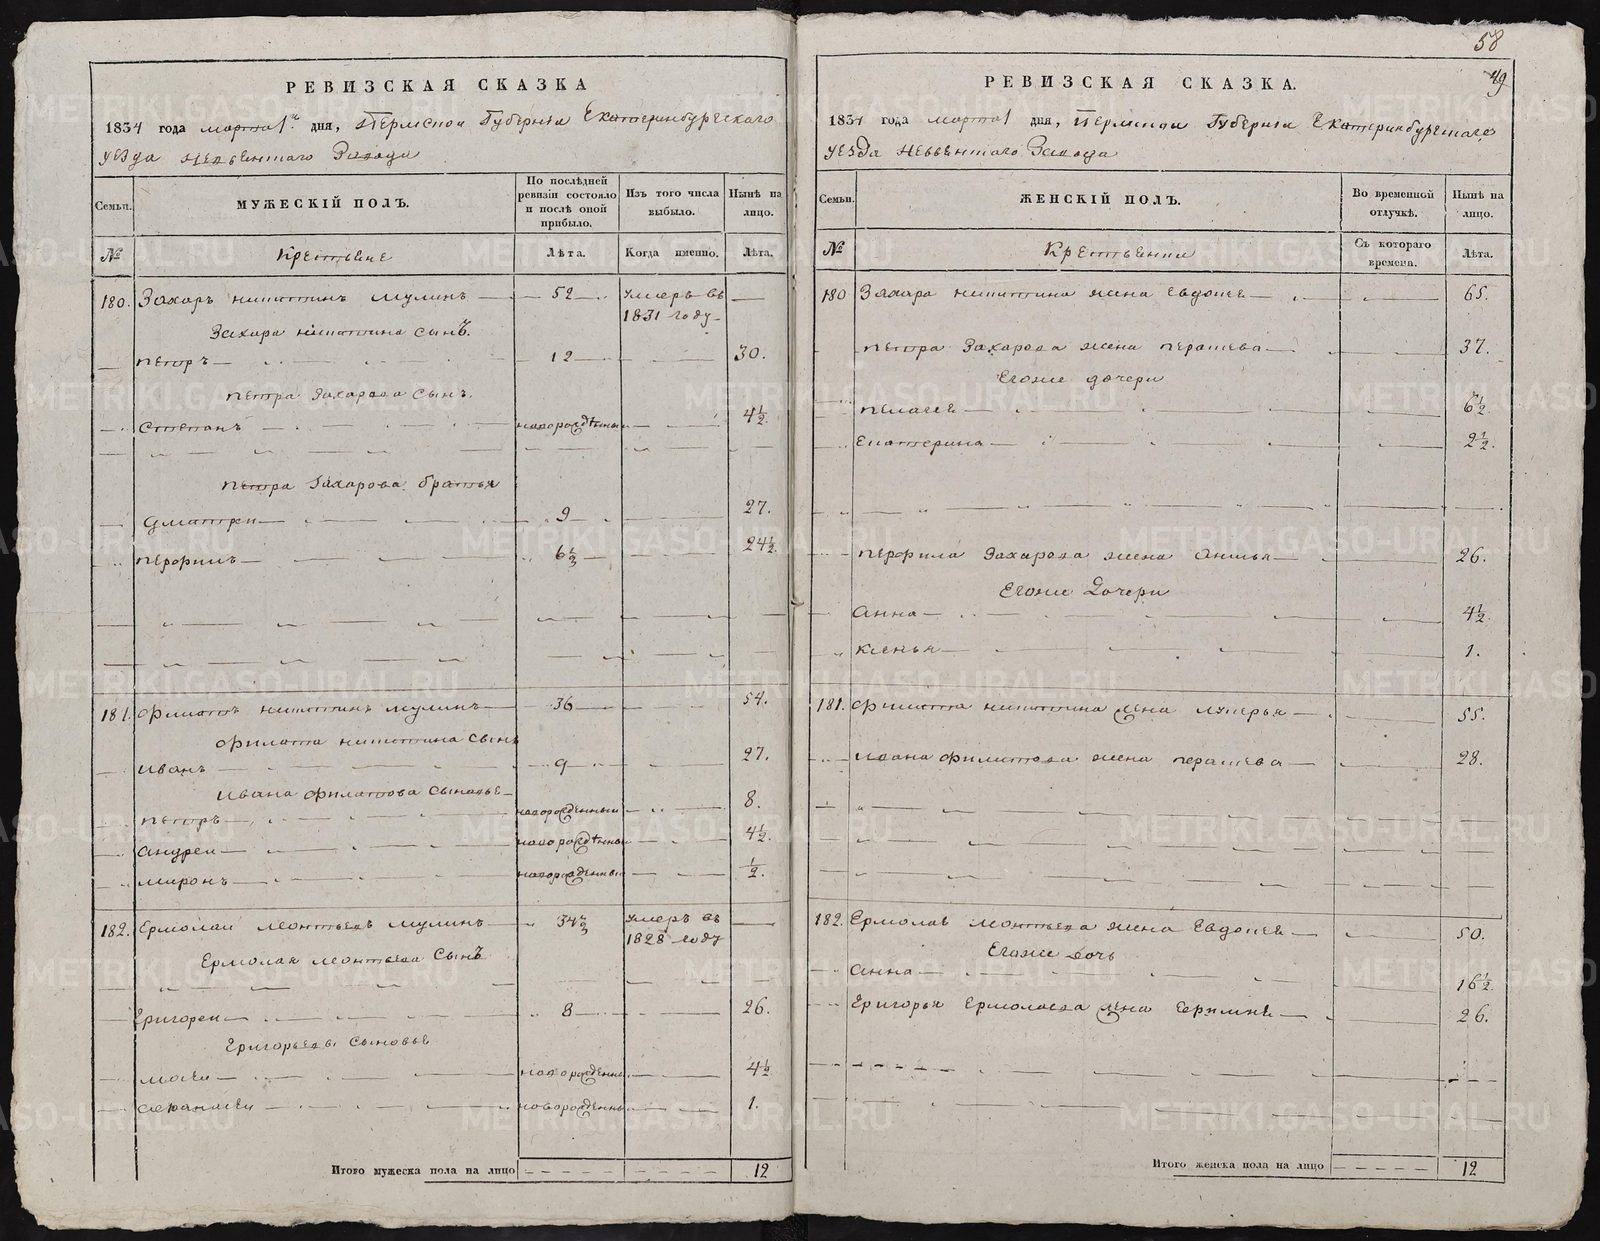 58
РЕВИЗСКАЯ СКАЗКА
1834 года марта 1 дня, Пермской Губернiи Екатеринбургскаго
уезда Невьянскаго Завода
Семьи.
МУЖЕСКIЙ ПОЛЪ.
По послѣдней ревизiи состояло и послѣ оной прибыло.
Изъ того числа выбыло.
Нынѣ на лицо.
№
Крестьяне
Лѣта.
Когда именно.
Лѣта.
180. Захаръ никитинъ мулинъ 52 умеръ въ
1831 году
Захара никитина сынъ.
петръ 12 30.
петра Захарова сынъ.
степанъ новорожденный 4½.
петра Захарова братья
дмитреи 9 27.
перфилъ 6 24½.
181. филатъ никитинъ мулинъ 36 54.
филата никитина сынъ
иванъ 9 27.
ивана филатова сыновье
петръ новорожденный 8.
андреи новорожденный 4½.
миронъ новорожденный ½.
182. Ермолаи леонтьевъ мулинъ 34 умеръ въ
1828 году
Ермолая леонтьева сынъ
григореи 8 26.
григорьевы сыновье
новорожденны 4½
новорожденны 1.
Итого мужеска пола на лицо 12
49
РЕВИЗСКАЯ СКАЗКА.
1834 года марта 1 дня, Пермской Губернiи Екатеринбургскаго
уезда Невьянскаго Завода
Семьи.
ЖЕНСКIЙ ПОЛЪ.
Во временной отлучкѣ.
Нынѣ на лицо.
№
Крестьянки
Съ котораго времена.
Лѣта.
180 Захара никитина жена Евдокея 65.
петра Захарова жена парасковья 37.
Егоже дочери
пелагея 6½.
Екатерина 2½.
перфила Захарова жена 26.
Егоже дочери
анна 4½.
ксенья 1.
181. филата никитина жена лукерья 55.
ивана филатова жена 28.
182. Ермолая леонтьева жена Евдокея 50.
Егоже дочь
анна 16½.
григорья Ермолаева жена 26.
Итого женска пола на лицо 12
METRIKI.GASO-URAL.RU